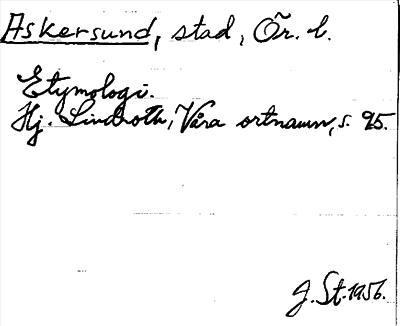 Askersund, stad, Ör. l.
Etymologi.
Hj. Lindroth, Våra ortnamn, s. 95.
J. St. 1956.